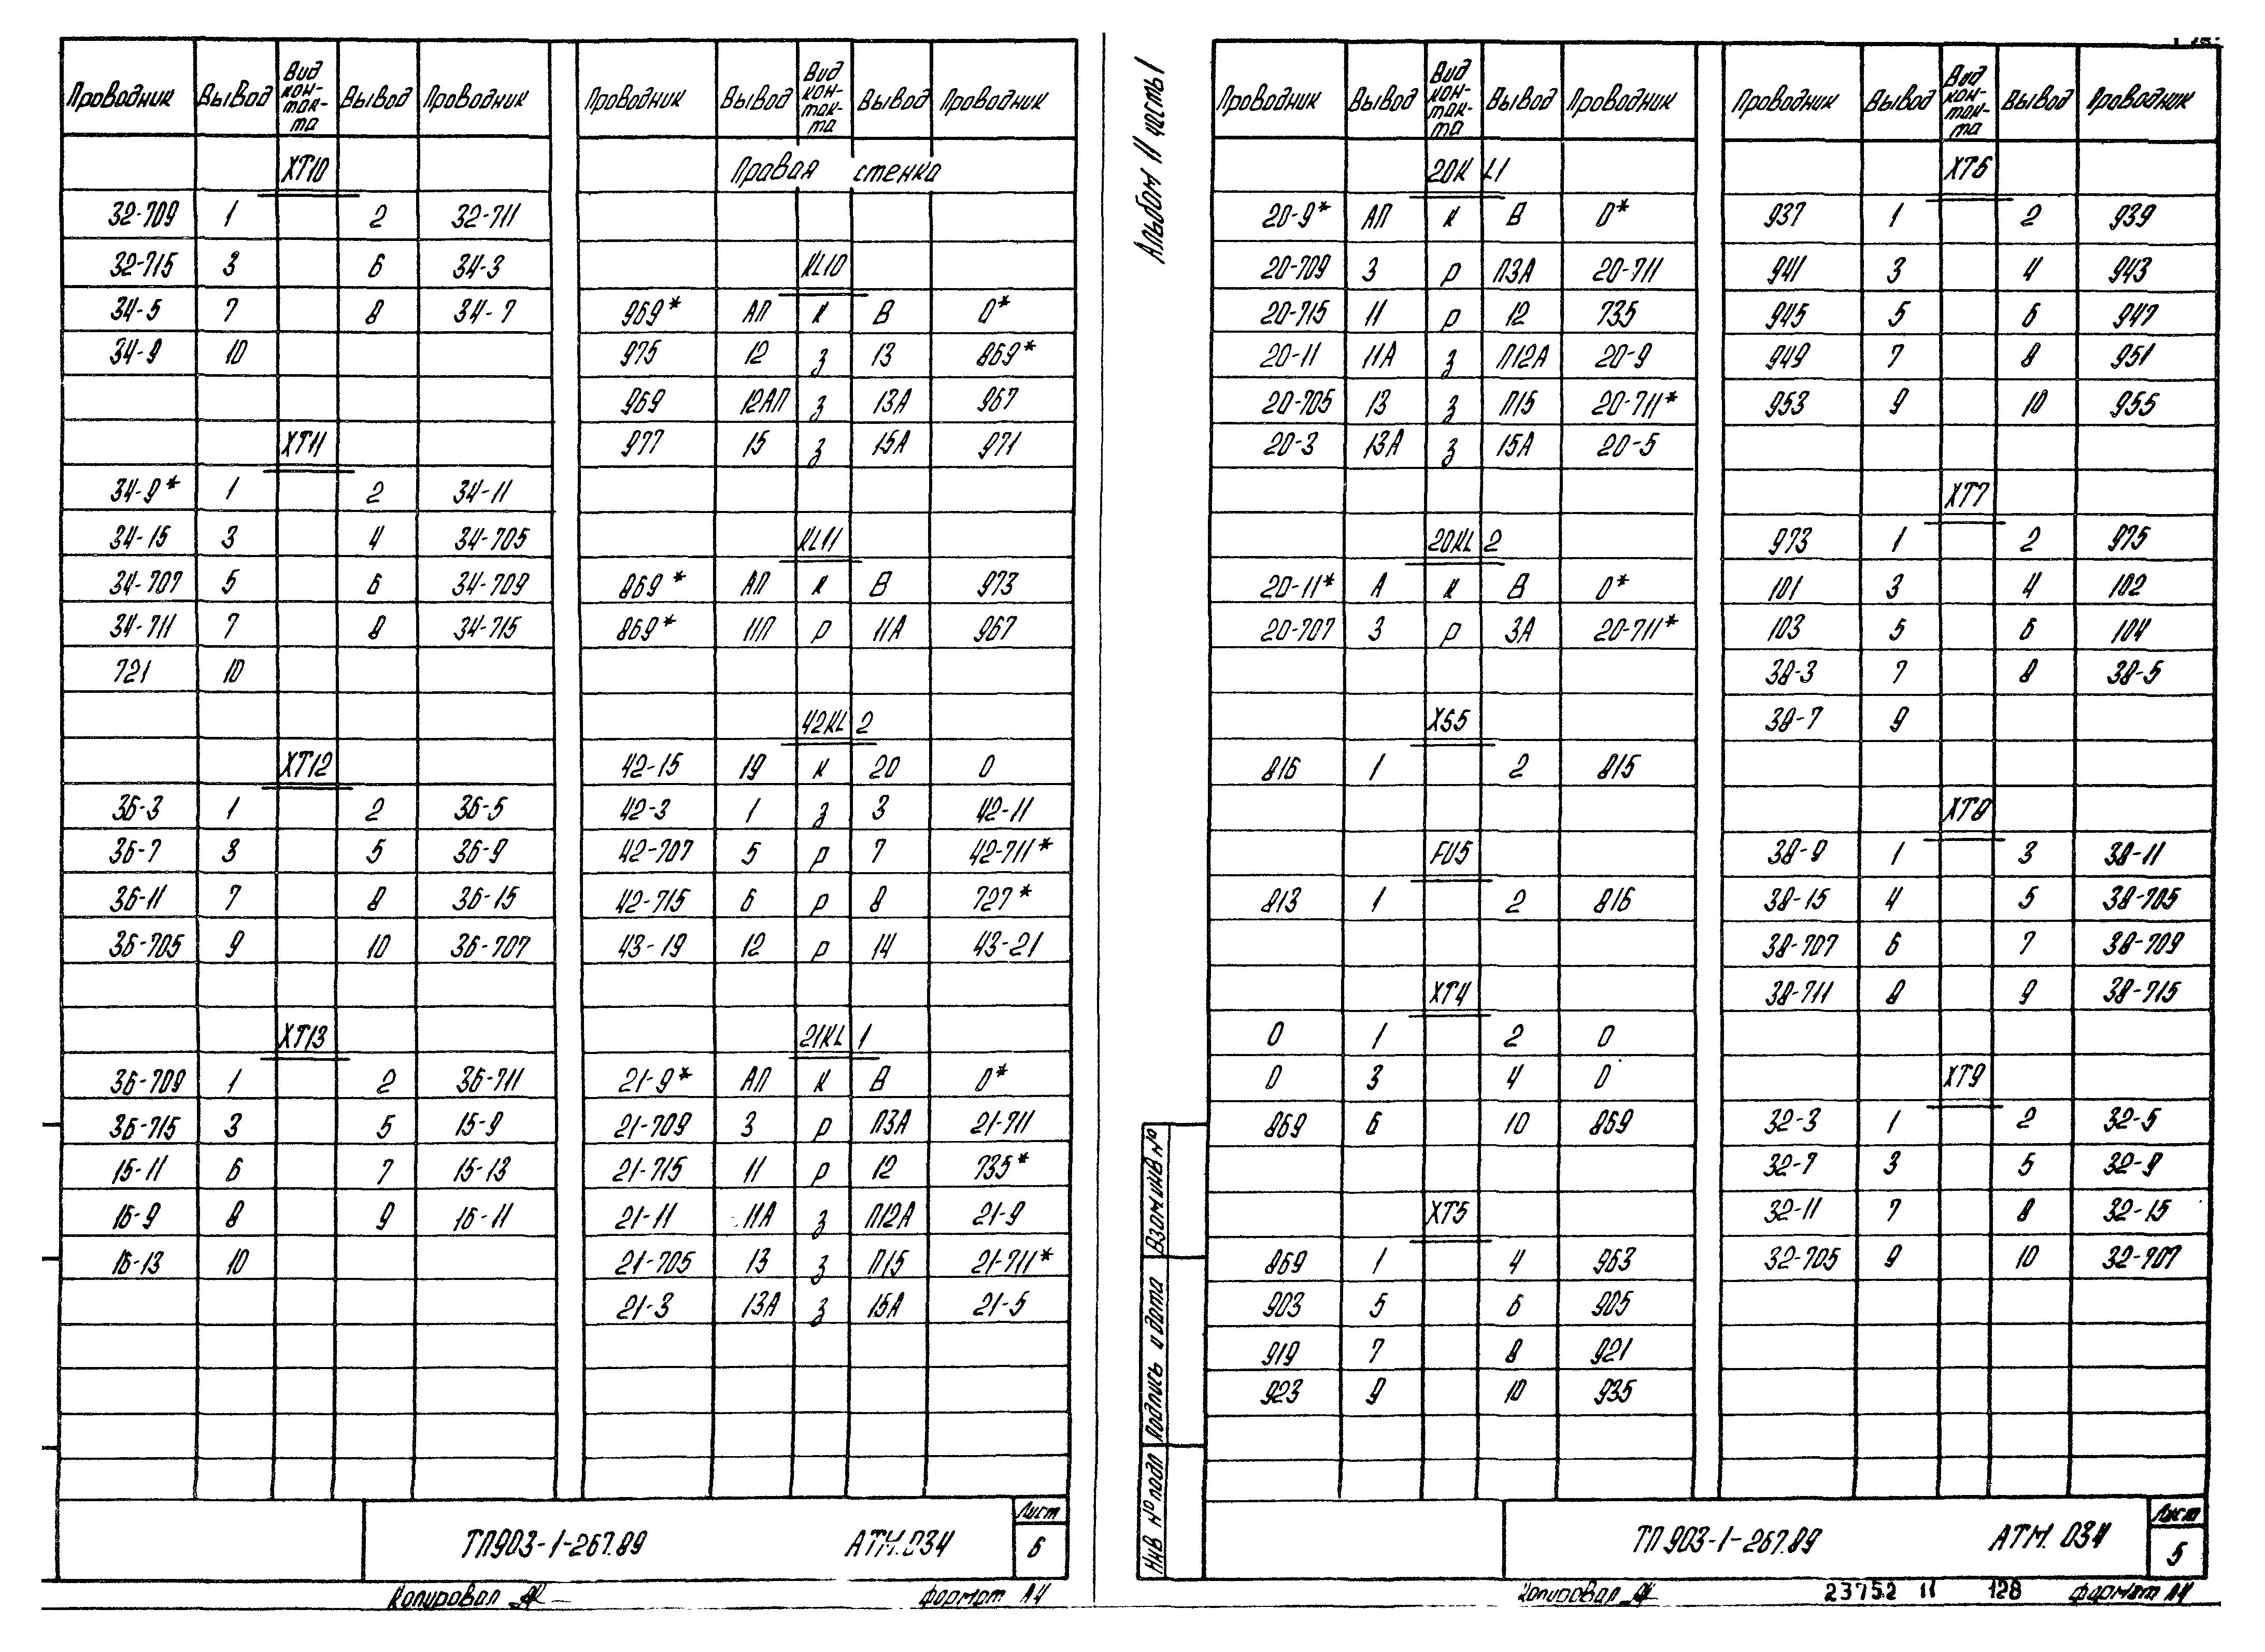 Проводник Вывод Вид кон-так-та Вывод Проводник
ХТ10
32-709 1 2 32-711
32-715 3 6 34-3
34-5 7 8 34-7
34-9 10
ХТ11
34-9* 1 2 34-11
34-15 3 4 34-705
34-707 5 6 34-709
34-711 7 8 34-715
721 10
ХТ12
36-3 1 2 36-5
36-7 3 5 36-9
36-11 7 8 36-15
36-705 9 10 36-707
ХТ13
36-709 1 2 36-711
36-715 3 5 15-9
15-11 6 7 15-13
16-9 8 9 16-11
16-13 10
Проводник Вывод Вид кон-так-та Вывод Проводник
Правая стенка
KL10
969* АП к В 0*
975 12 з 13 869*
969 12АП з 13А 967
977 15 з 15А 971
KL11
869* АП к В 973
869* 11П р 11А 967
42KL 2
42-15 19 к 20 0
42-3 1 з 3 42-11
42-707 5 р 7 42-711*
42-715 6 р 8 727*
43-19 12 р 14 43-21
21KL 1
21-9* АП к В 0*
21-709 3 р П3А 21-711
21-715 11 р 12 735*
21-11 11А з П12А 21-9
21-705 13 з П15 21-711*
21-3 13А з 15А 21-5
ТП903-1-267.89 АТМ.034
Лист
6
Копировал
формат А4
Альбом II часть 1
Проводник Вывод Вид кон-так-та Вывод Проводник
20K L1
20-9* АП к В 0*
20-709 3 р П3А 20-711
20-715 11 р 12 735
20-11 11А з П12А 20-9
20-705 13 з П15 20-711*
20-3 13А з 15А 20-5
20KL 2
20-11* А к В 0*
20-707 3 р 3А 20-711*
XS5
816 1 2 815
FU5
813 1 2 816
ХТ4
0 1 2 0
0 3 4 0
869 6 10 869
ХТ5
869 1 4 963
903 5 6 905
919 7 8 921
923 9 10 935
Проводник Вывод Вид кон-так-та Вывод Проводник
ХТ6
937 1 2 939
941 3 4 943
945 5 6 947
949 7 8 951
953 9 10 955
ХТ7
973 1 2 975
101 3 4 102
103 5 6 104
38-3 7 8 38-5
38-7 9
ХТ8
38-9 1 3 38-11
38-15 4 5 38-705
38-707 6 7 38-709
38-711 8 9 38-715
ХТ9
32-3 1 2 32-5
32-7 3 5 32-9
32-11 7 8 32-15
32-705 9 10 32-707
Инв № подл
Подпись и дата
Взам инв №
ТП 903-1-267.89 АТМ. 034
Лист
5
Копировал
23752 II 128 формат А4